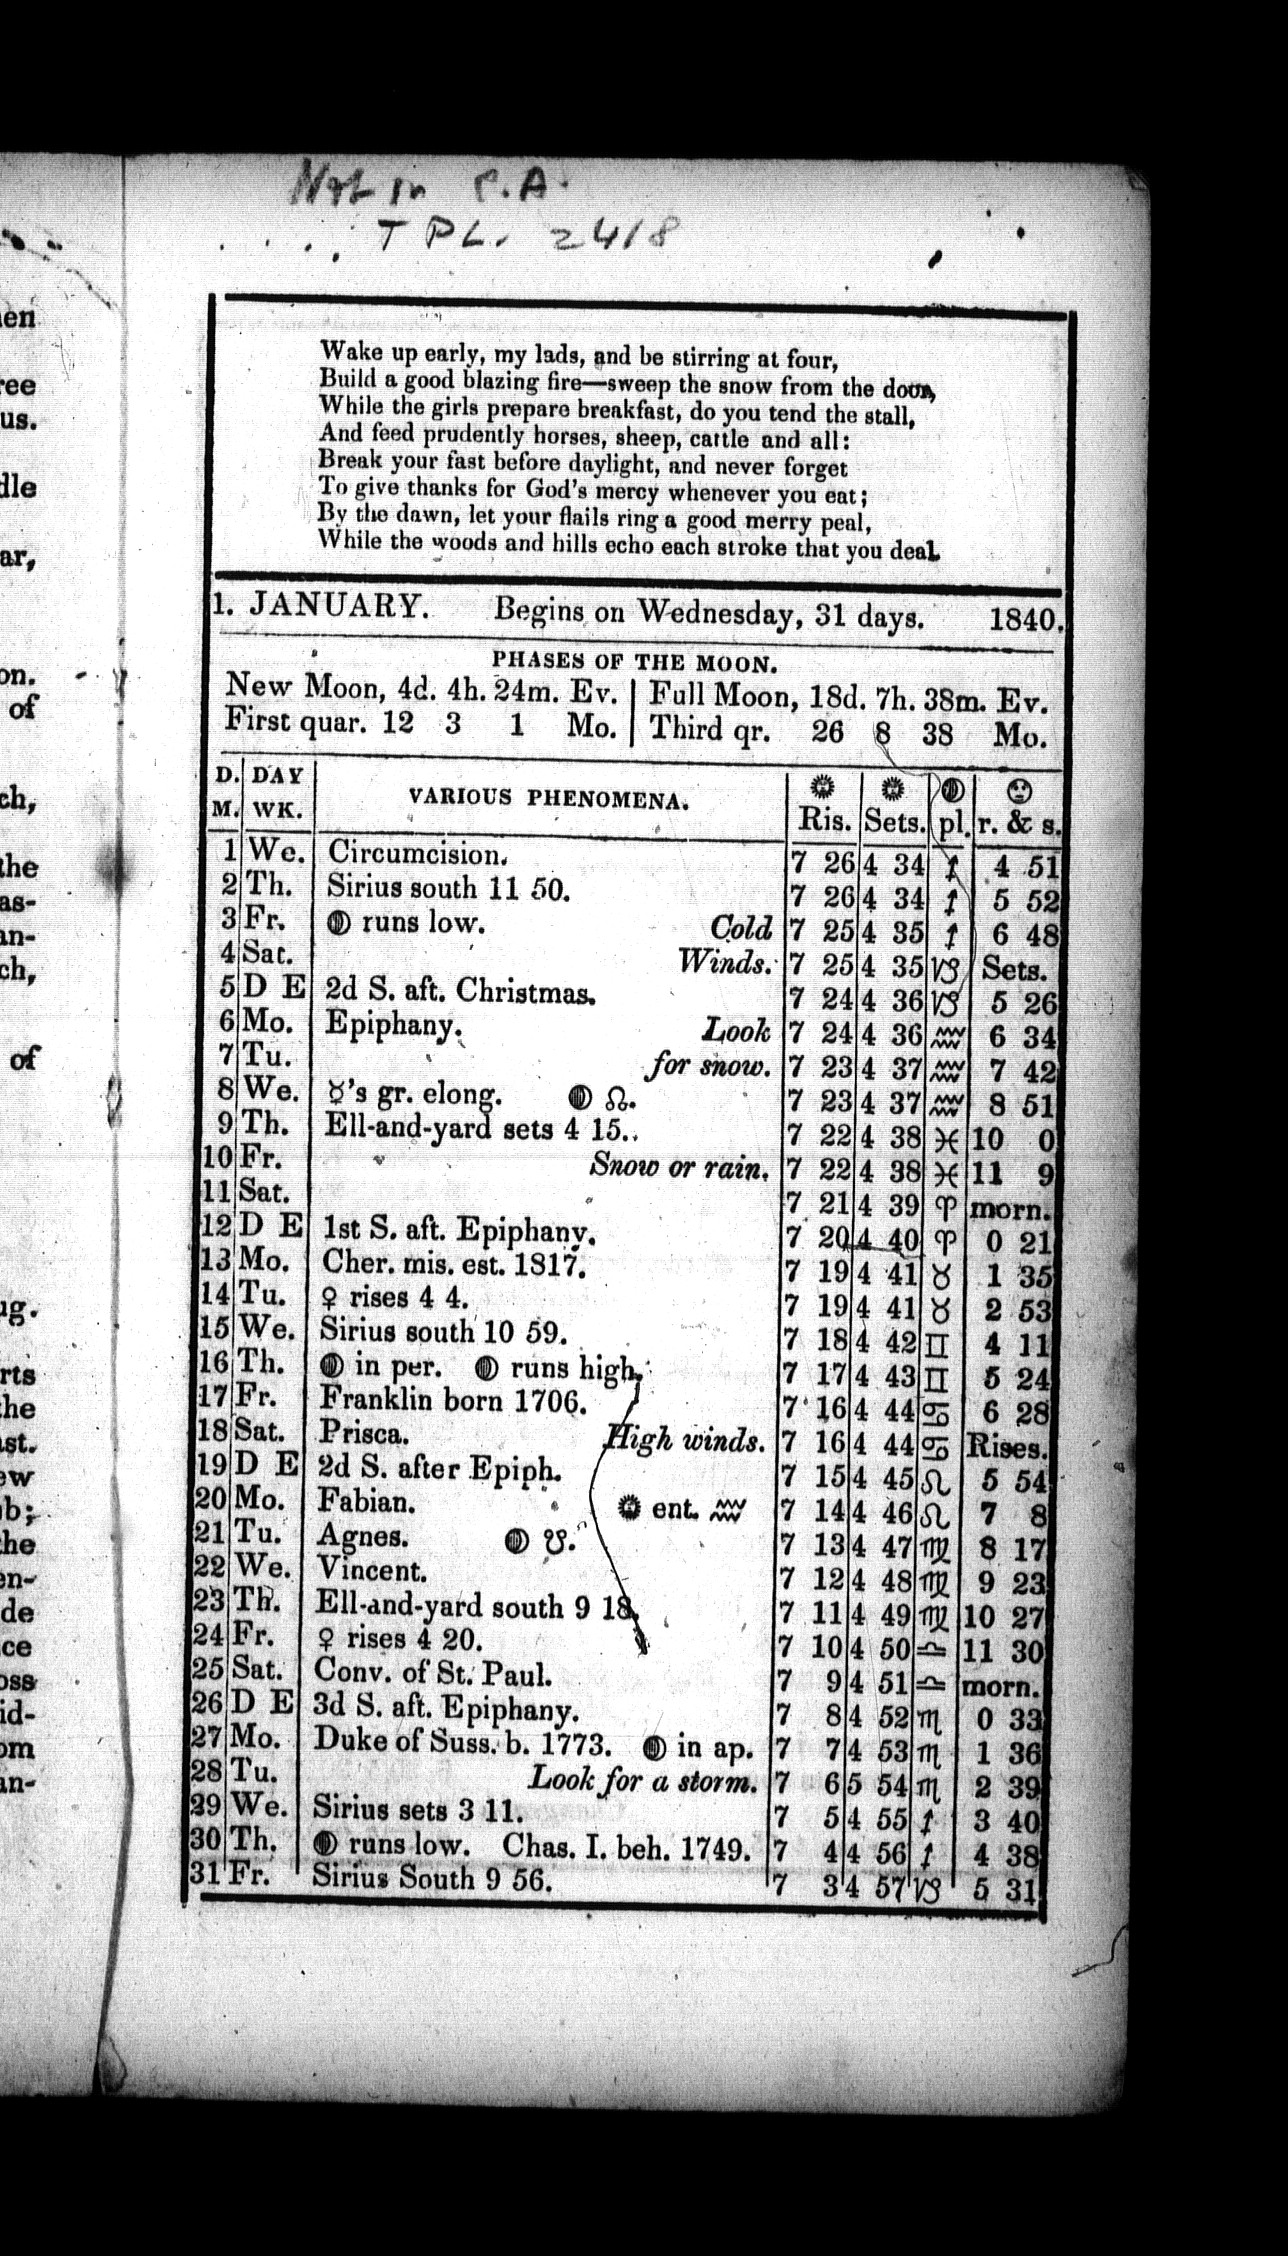 Not in P.A.
TPL. 2418
Wake up early, my lads, and be stirring at four,
Build a good blazing fire—sweep the snow from the door,
While the girls prepare breakfast, do you tend the stall,
And feed prudently horses, sheep, cattle and all:
Break your fast before daylight, and never forget
To give thanks for God's mercy whenever you eat;
By the dawn, let your flails ring a good merry peal,
While the woods and hills echo each stroke that you deal.
1. JANUARY. Begins on Wednesday, 31 days. 1840.
PHASES OF THE MOON.
New Moon, 4d. 4h. 24m. Ev. | Full Moon, 18d. 7h. 38m. Ev.
First quar. 12 3 1 Mo. | Third qr. 26 8 38 Mo.
D. DAY
M. WK. VARIOUS PHENOMENA. Ris. Sets. pl. r. & s.
1 We. Circumcision. 7 26 4 34 ♐ 4 51
2 Th. Sirius south 11 50. 7 26 4 34 ♐ 5 52
3 Fr. ☽ runs low. Cold 7 25 4 35 ♐ 6 48
4 Sat. Winds. 7 25 4 35 ♑ Sets.
5 D E 2d S. aft. Christmas. 7 24 4 36 ♑ 5 26
6 Mo. Epiphany. Look 7 24 4 36 ♒ 6 34
7 Tu. for snow. 7 23 4 37 ♒ 7 42
8 We. ☿'s gr. elong. ☽ ☊. 7 23 4 37 ♒ 8 51
9 Th. Ell-and-yard sets 4 15. 7 22 4 38 ♓ 10 0
10 Fr. Snow or rain. 7 22 4 38 ♓ 11 9
11 Sat. 7 21 4 39 ♈ morn.
12 D E 1st S. aft. Epiphany. 7 20 4 40 ♈ 0 21
13 Mo. Cher. mis. est. 1817. 7 19 4 41 ♉ 1 35
14 Tu. ♀ rises 4 4. 7 19 4 41 ♉ 2 53
15 We. Sirius south 10 59. 7 18 4 42 ♊ 4 11
16 Th. ☽ in per. ☽ runs high. 7 17 4 43 ♊ 5 24
17 Fr. Franklin born 1706. 7 16 4 44 ♋ 6 28
18 Sat. Prisca. High winds. 7 16 4 44 ♋ Rises.
19 D E 2d S. after Epiph. 7 15 4 45 ♌ 5 54
20 Mo. Fabian. ☀ ent. ♒ 7 14 4 46 ♌ 7 8
21 Tu. Agnes. ☽ ☋. 7 13 4 47 ♍ 8 17
22 We. Vincent. 7 12 4 48 ♍ 9 23
23 Th. Ell-and-yard south 9 18. 7 11 4 49 ♍ 10 27
24 Fr. ♀ rises 4 20. 7 10 4 50 ♎ 11 30
25 Sat. Conv. of St. Paul. 7 9 4 51 ♎ morn.
26 D E 3d S. aft. Epiphany. 7 8 4 52 ♏ 0 33
27 Mo. Duke of Suss. b. 1773. ☽ in ap. 7 7 4 53 ♏ 1 36
28 Tu. Look for a storm. 7 6 5 54 ♏ 2 39
29 We. Sirius sets 3 11. 7 5 4 55 ♐ 3 40
30 Th. ☽ runs low. Chas. I. beh. 1749. 7 4 4 56 ♐ 4 38
31 Fr. Sirius South 9 56. 7 3 4 57 ♑ 5 31